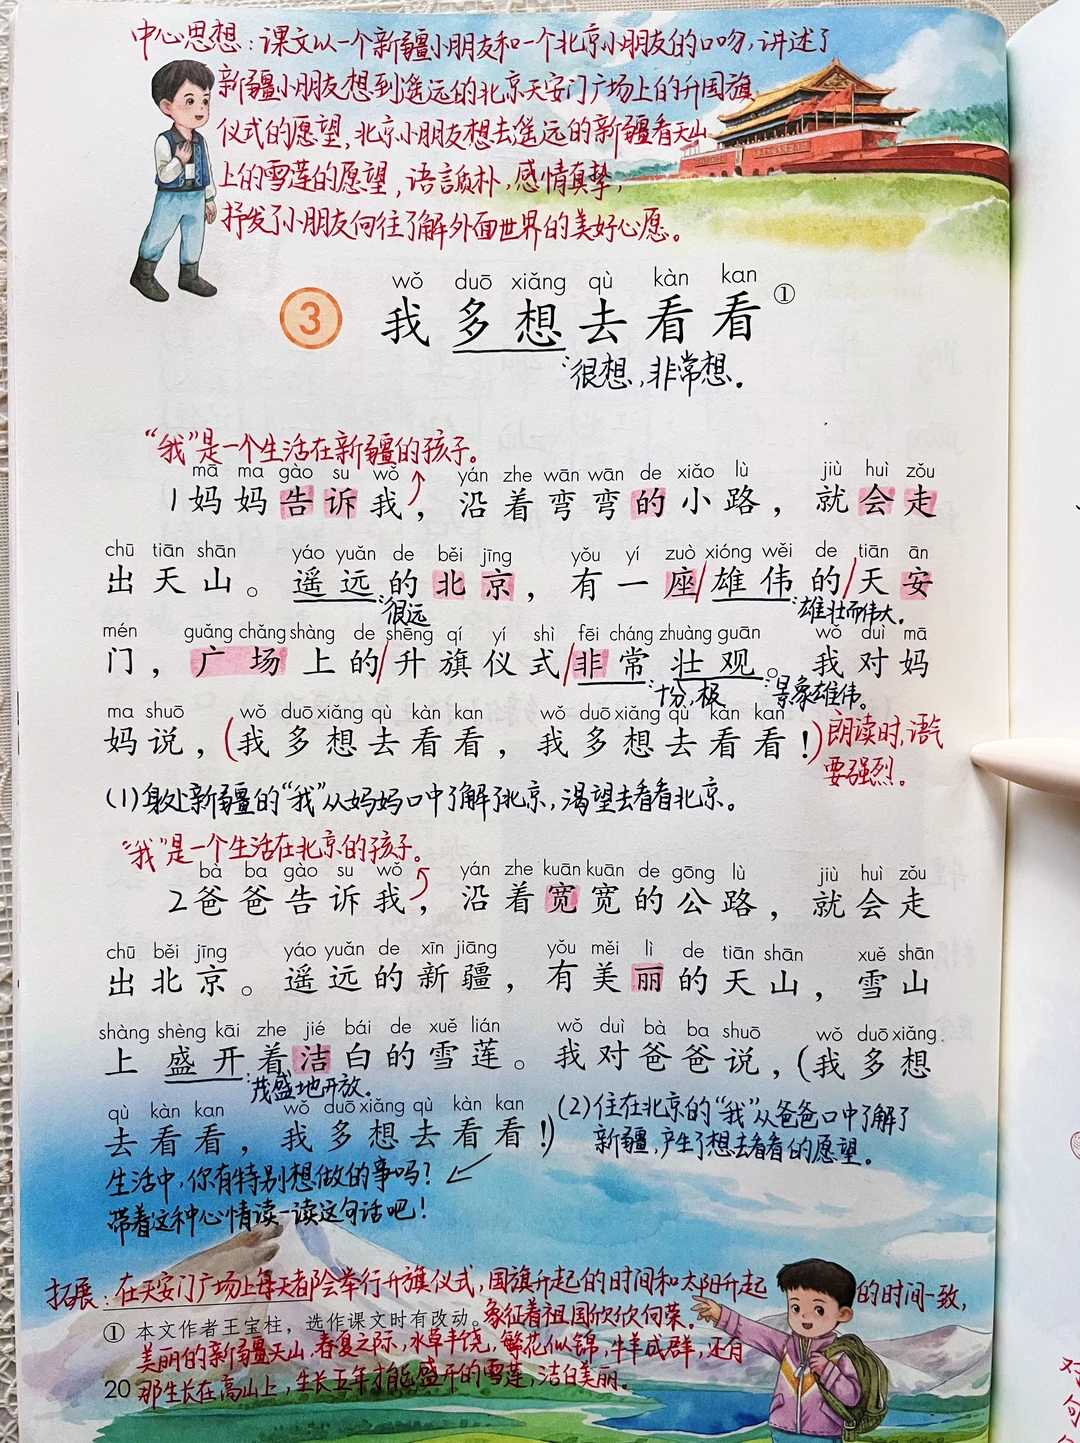 中心思想：课文以一个新疆小朋友和一个北京小朋友的口吻，讲述了
新疆小朋友想到遥远的北京天安门广场上的升国旗
仪式的愿望，北京小朋友想去遥远的新疆看天山
上的雪莲的愿望，语言质朴，感情真挚，
抒发了小朋友向往了解外面世界的美好心愿。
wǒ duō xiǎng qù kàn kan
3 我多想去看看①
：很想，非常想。
“我”是一个生活在新疆的孩子。
mā ma gào su wǒ yán zhe wān wān de xiǎo lù jiù huì zǒu
1妈妈告诉我，沿着弯弯的小路，就会走
chū tiān shān yáo yuǎn de běi jīng yǒu yí zuò xióng wěi de tiān ān
出天山。遥远的北京，有一座/雄伟的/天安
：很远 ：雄壮而伟大。
mén guǎng chǎng shàng de shēng qí yí shì fēi cháng zhuàng guān wǒ duì mā
门，广场上的/升旗仪式/非常壮观。我对妈
：十分，极 ：景象雄伟。
ma shuō wǒ duō xiǎng qù kàn kan wǒ duō xiǎng qù kàn kan
妈说，(我多想去看看，我多想去看看！)朗读时，语气
要强烈。
(1)身处新疆的“我”从妈妈口中了解了北京，渴望去看看北京。
“我”是一个生活在北京的孩子。
bà ba gào su wǒ yán zhe kuān kuān de gōng lù jiù huì zǒu
2爸爸告诉我，沿着宽宽的公路，就会走
chū běi jīng yáo yuǎn de xīn jiāng yǒu měi lì de tiān shān xuě shān
出北京。遥远的新疆，有美丽的天山，雪山
shàng shèng kāi zhe jié bái de xuě lián wǒ duì bà ba shuō wǒ duō xiǎng
上盛开着洁白的雪莲。我对爸爸说，(我多想
：茂盛地开放。
qù kàn kan wǒ duō xiǎng qù kàn kan
去看看，我多想去看看！)
(2)住在北京的“我”从爸爸口中了解了
新疆，产生了想去看看的愿望。
生活中，你有特别想做的事吗？
带着这种心情读一读这句话吧！
拓展：在天安门广场上每天都会举行升旗仪式，国旗升起的时间和太阳升起的时间一致，
象征着祖国欣欣向荣。
① 本文作者王宝柱，选作课文时有改动。
美丽的新疆天山，春夏之际，水草丰饶，繁花似锦，牛羊成群，还有
那生长在高山上，生长五年才能盛开的雪莲，洁白美丽。
20
对
句